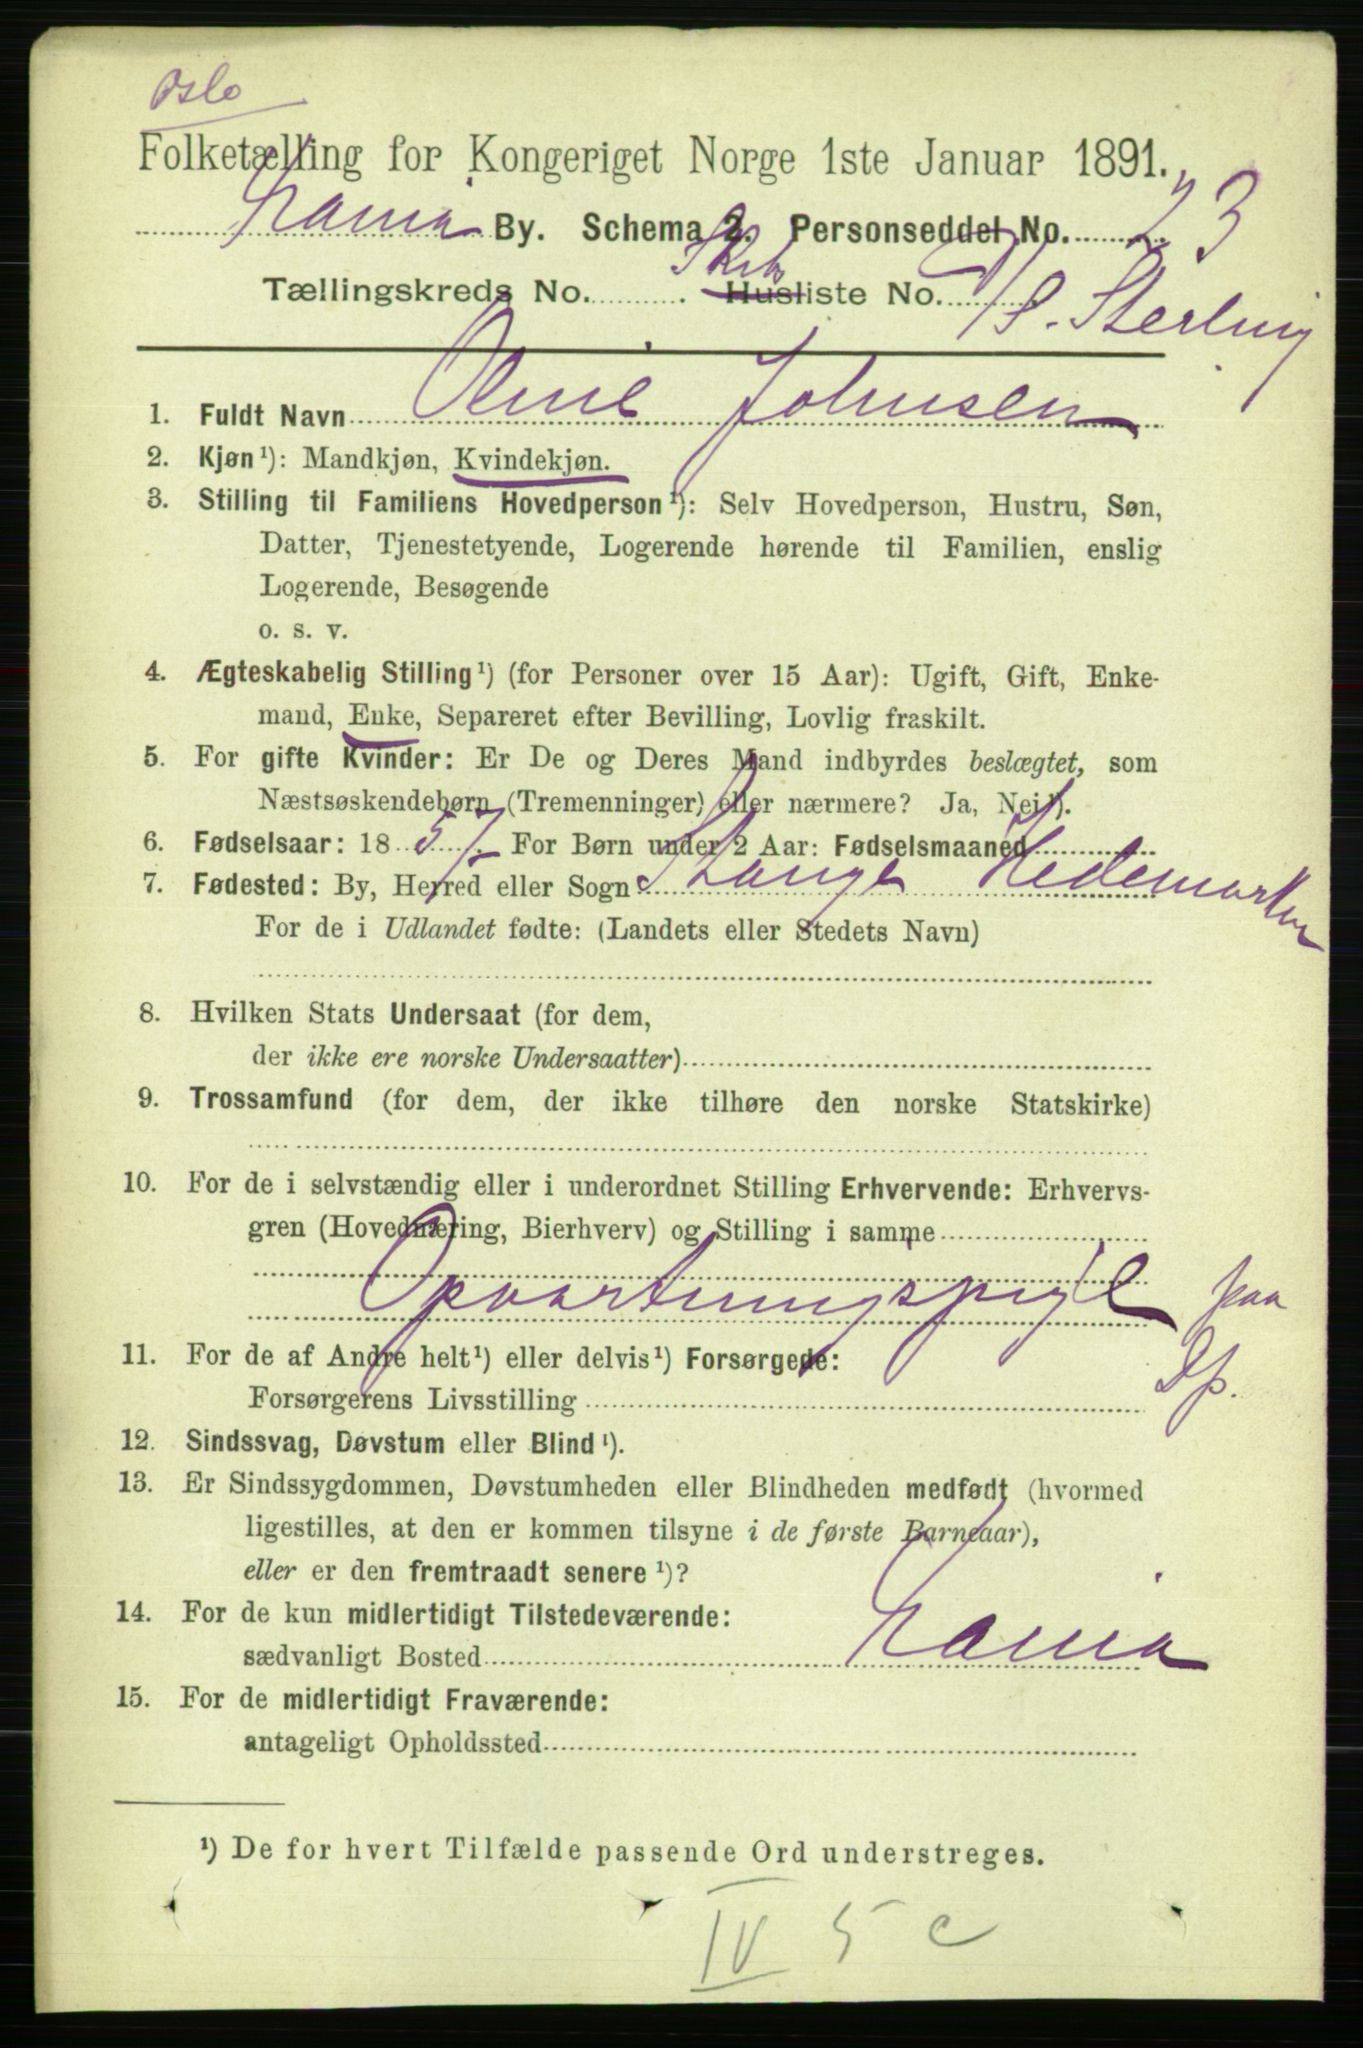 Oslo
Folketælling for Kongeriget Norge 1ste Januar 1891.
Kania By. Schema 2. Personseddel No. 23
Tællingskreds No. ........ Skibsliste No. D/S. Sterling
1. Fuldt Navn Oline Johnsen
2. Kjøn ¹): Mandkjøn, Kvindekjøn.
3. Stilling til Familiens Hovedperson ¹): Selv Hovedperson, Hustru, Søn,
Datter, Tjenestetyende, Logerende hørende til Familien, enslig
Logerende, Besøgende
o. s. v.
4. Ægteskabelig Stilling ¹) (for Personer over 15 Aar): Ugift, Gift, Enke-
mand, Enke, Separeret efter Bevilling, Lovlig fraskilt.
5. For gifte Kvinder: Er De og Deres Mand indbyrdes beslægtet, som
Næstsøskendebørn (Tremenninger) eller nærmere? Ja, Nei ¹).
6. Fødselsaar: 1857. For Børn under 2 Aar: Fødselsmaaned
7. Fødested: By, Herred eller Sogn Stange Hedemarken
For de i Udlandet fødte: (Landets eller Stedets Navn)
8. Hvilken Stats Undersaat (for dem,
der ikke ere norske Undersaatter)
9. Trossamfund (for dem, der ikke tilhøre den norske Statskirke)
10. For de i selvstændig eller i underordnet Stilling Erhvervende: Erhvervs-
gren (Hovednæring, Bierhverv) og Stilling i samme
Opvartningspige paa
Dp.
11. For de af Andre helt ¹) eller delvis ¹) Forsørgede:
Forsørgerens Livsstilling
12. Sindssvag, Døvstum eller Blind ¹).
13. Er Sindssygdommen, Døvstumheden eller Blindheden medfødt (hvormed
ligestilles, at den er kommen tilsyne i de første Barneaar),
eller er den fremtraadt senere ¹)?
14. For de kun midlertidigt Tilstedeværende:
sædvanligt Bosted Kania
15. For de midlertidigt Fraværende:
antageligt Opholdssted
¹) De for hvert Tilfælde passende Ord understreges.
IV 5 c